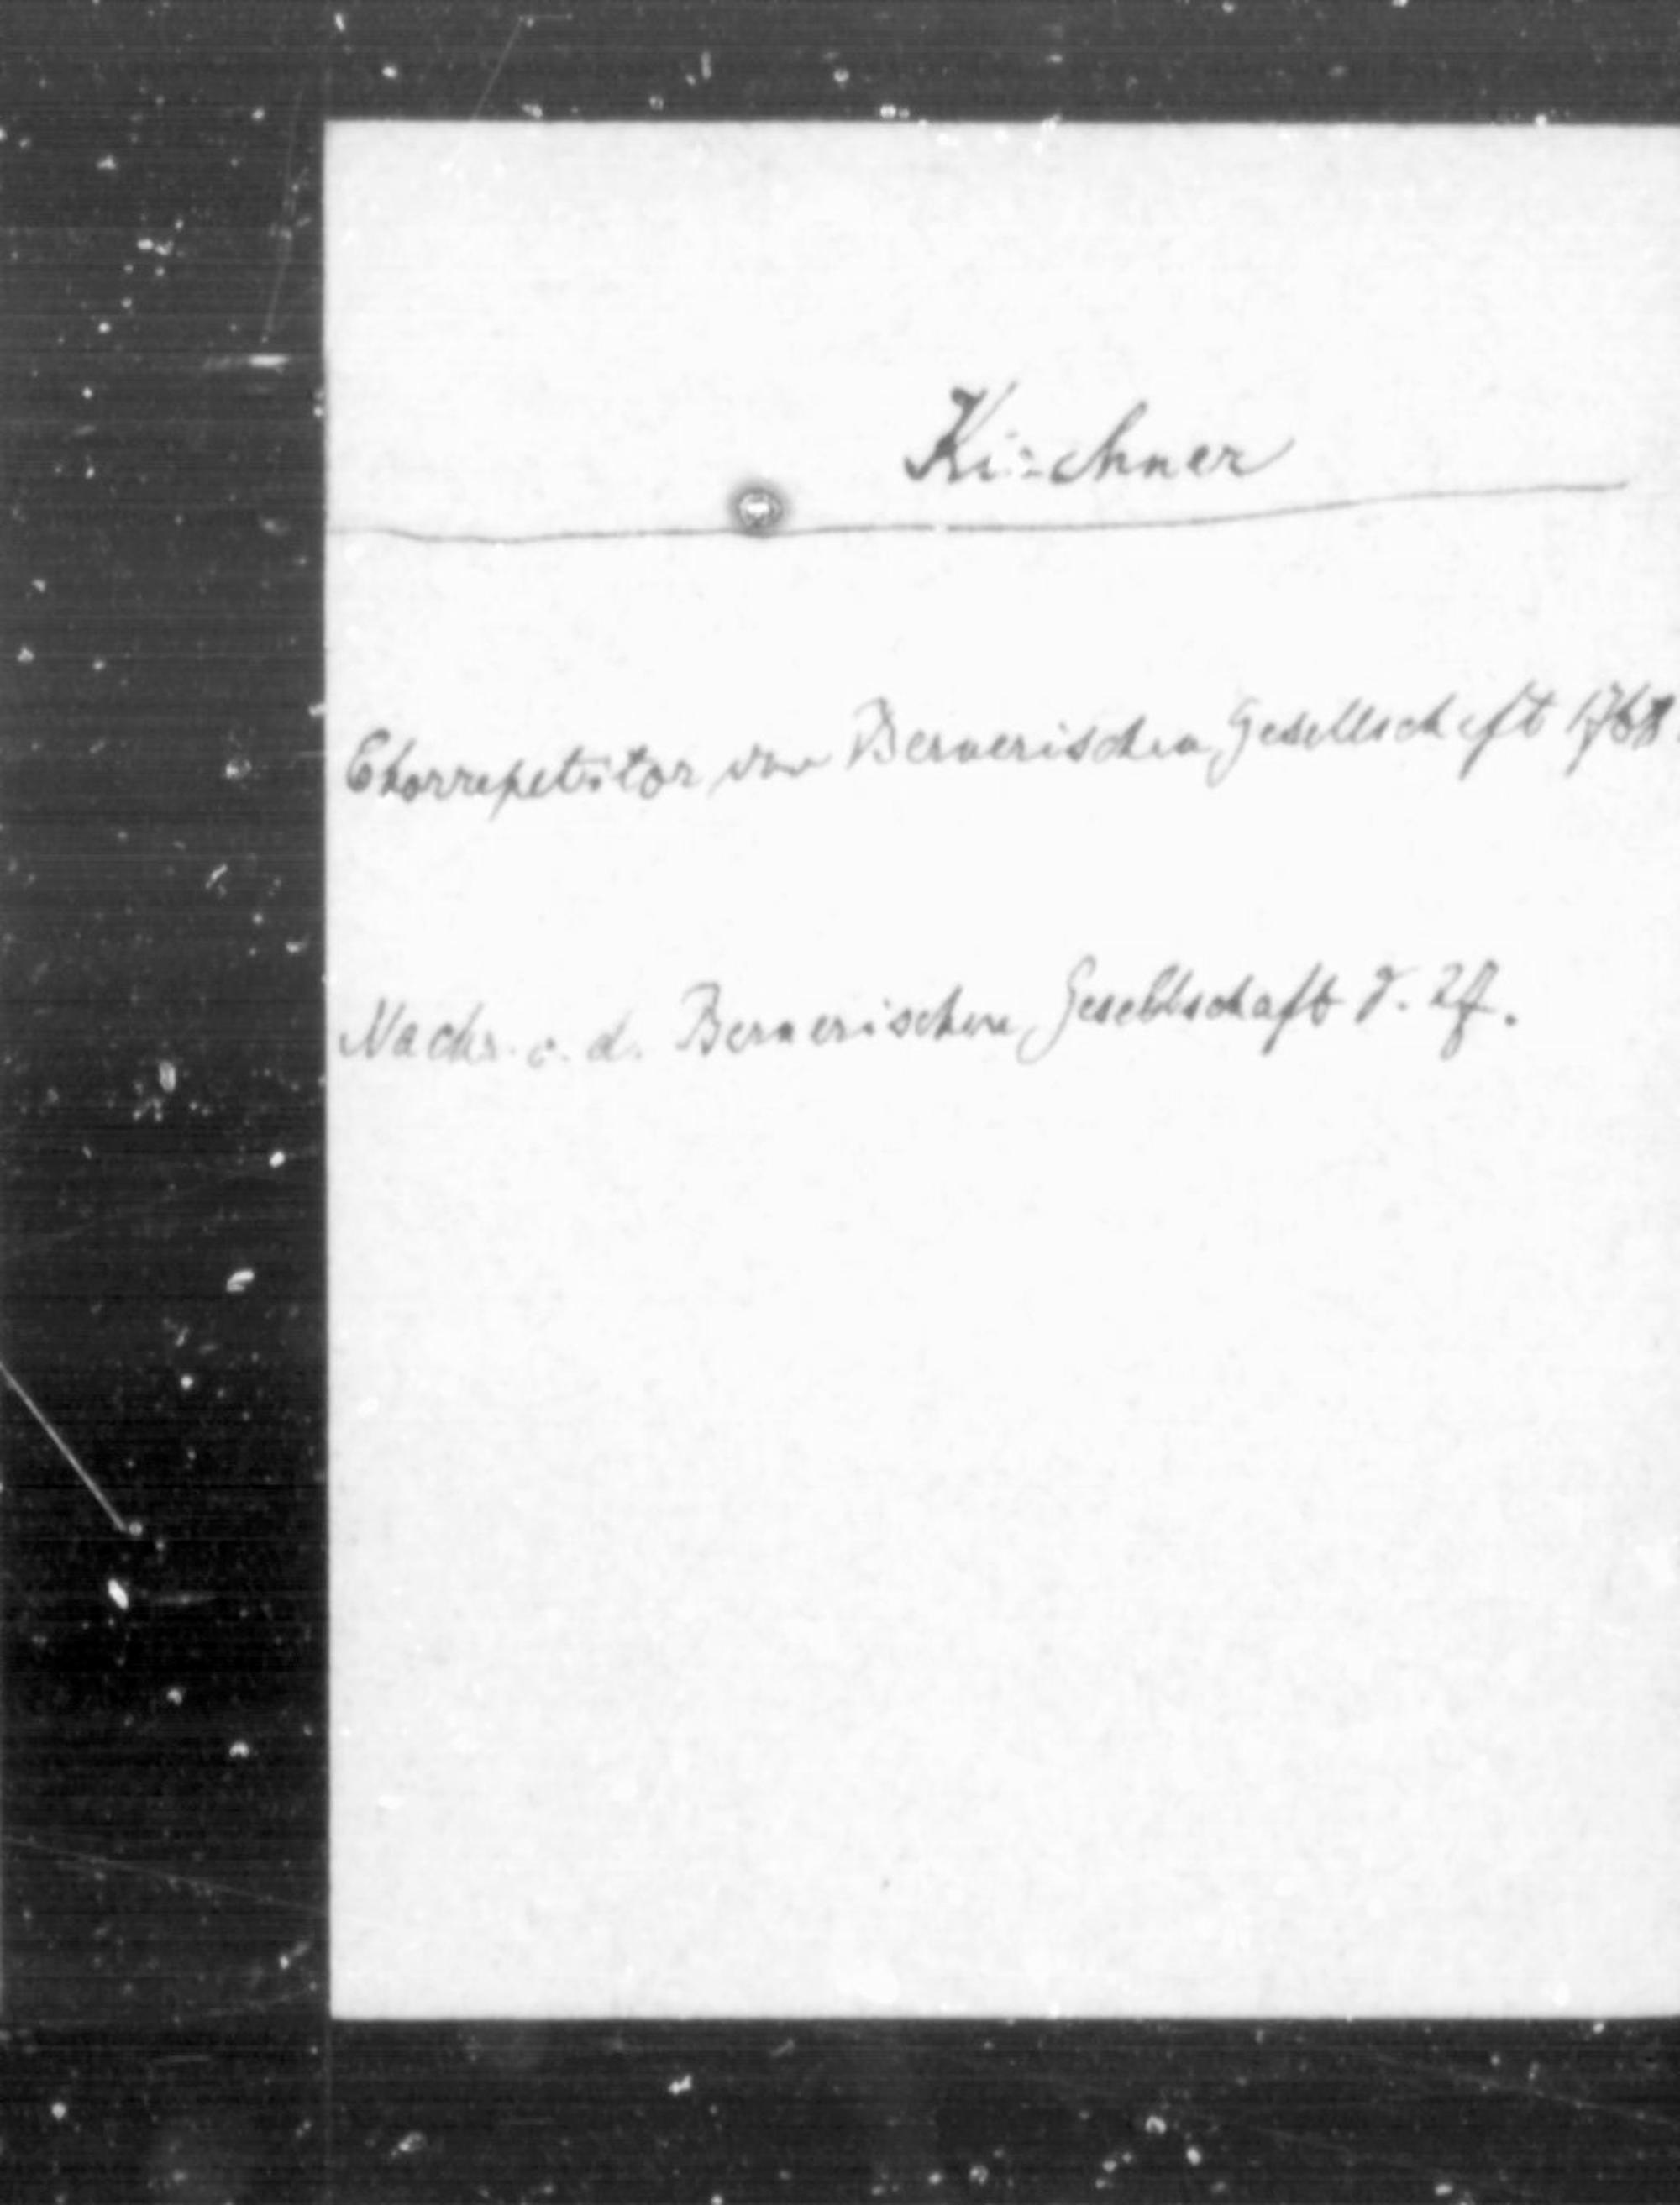 Kirchner
Chorrepetitor der Bernerischen Gesellschaft
Nachr. v. d. Bernerischen Gesellschaft